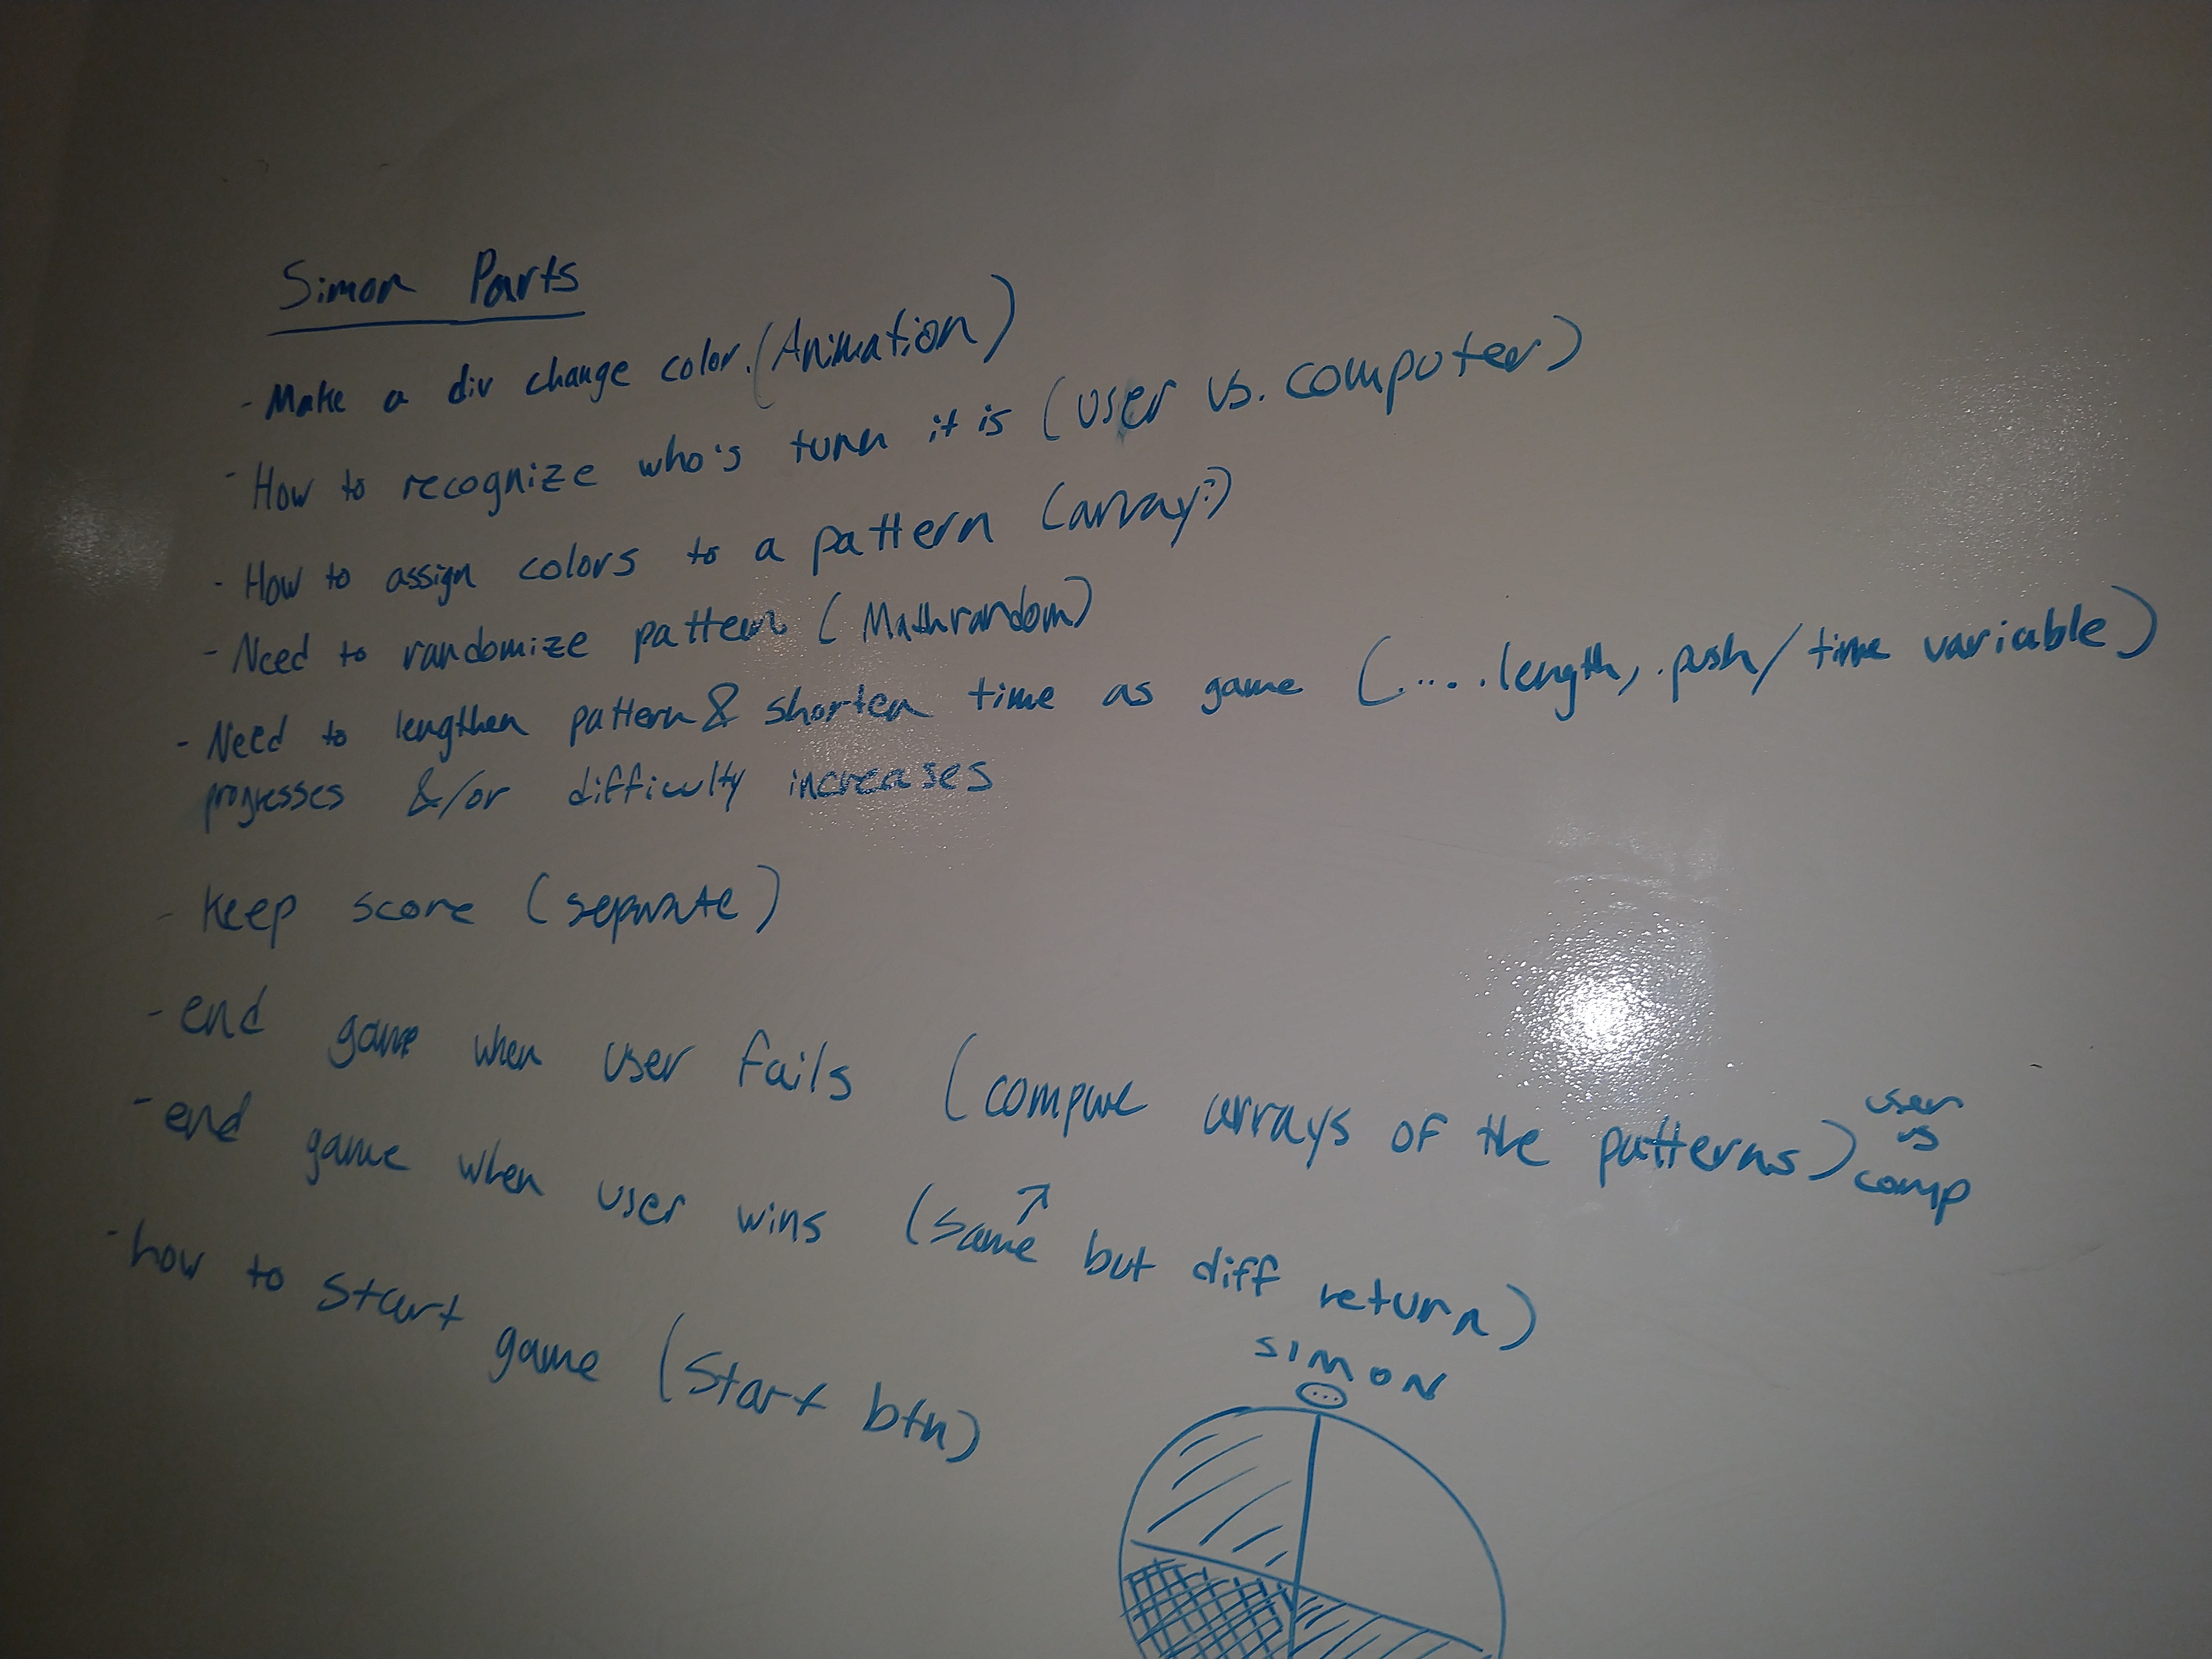 Simon Parts
- Make a div change color. (Animation)
- How to recognize who's turn it is (user vs. computer)
- How to assign colors to a pattern (array?)
- Need to randomize pattern (Math random)
- Need to lengthen pattern & shorten time as game (.... .length, .push / time variable)
progresses &/or difficulty increases
- Keep score (separate)
- end game when user fails (compare arrays of the patterns) user vs comp
- end game when user wins (same ↗ but diff return)
- how to start game (start btn)
SIMON